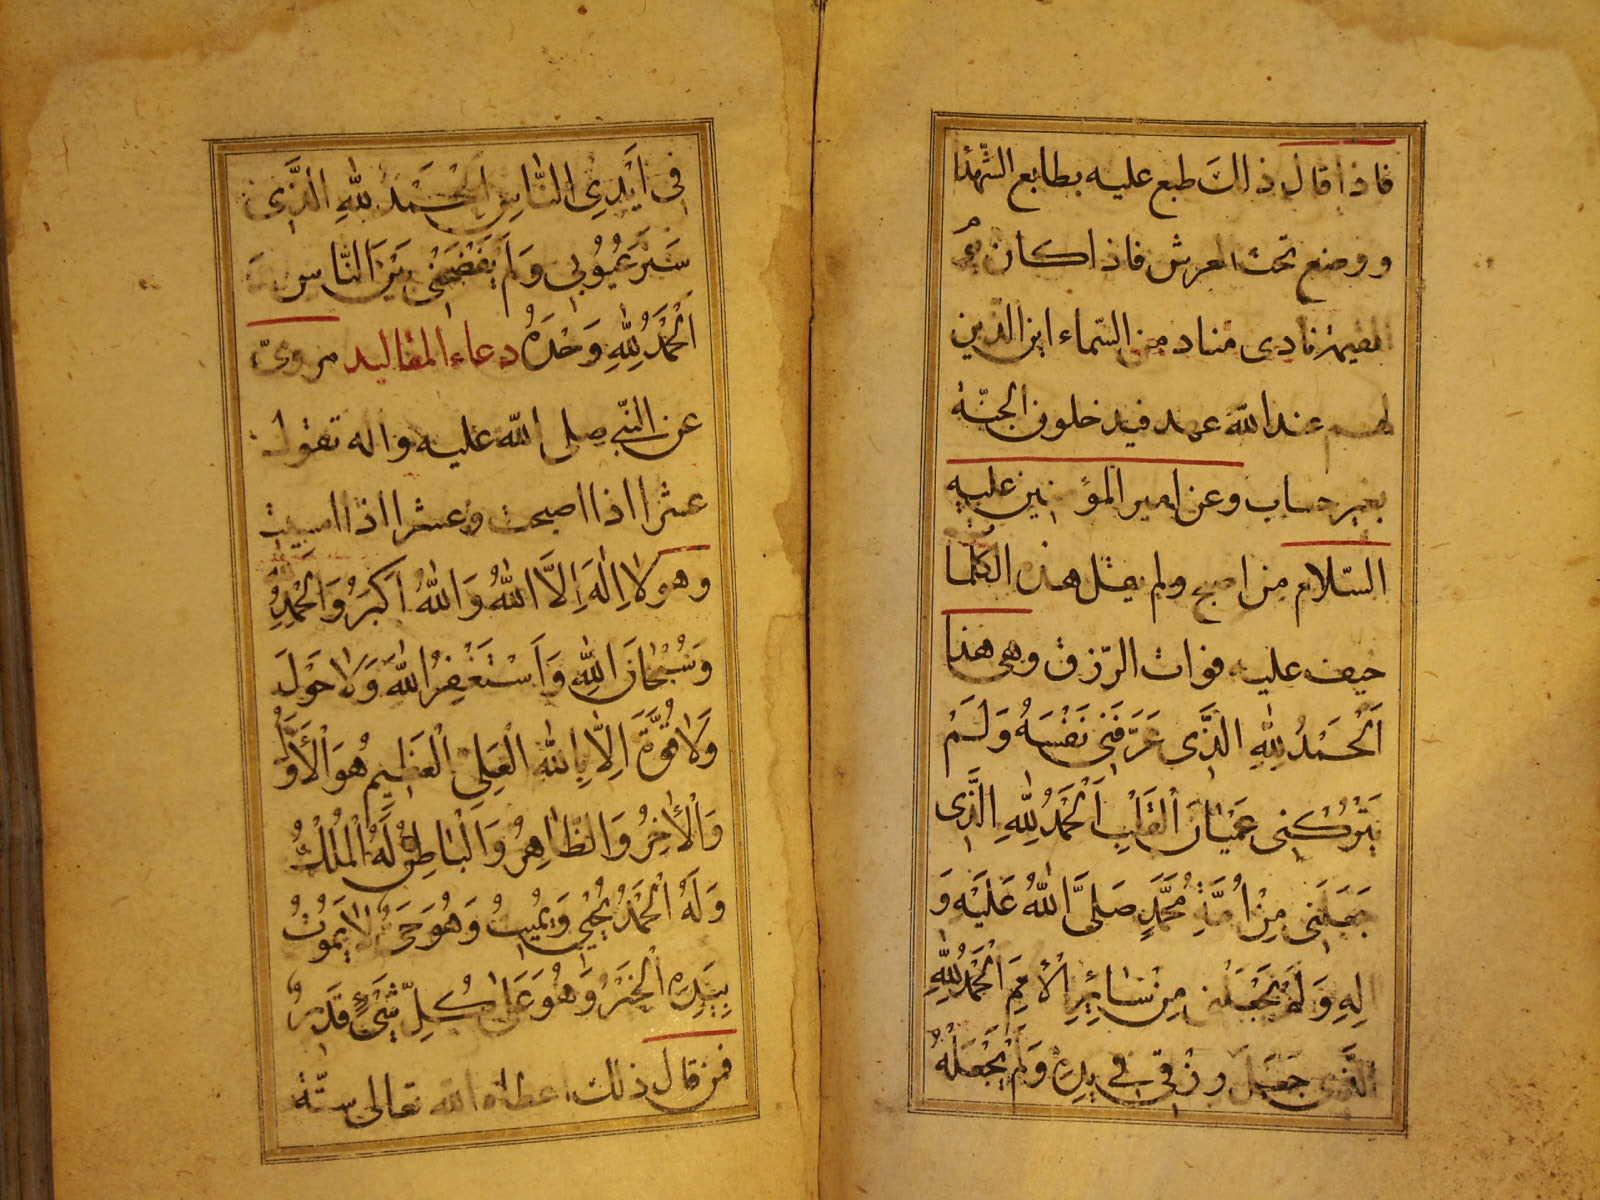 فاذا قال ذلك طبع عليه بطابع الشهدا
ووضع تحت العرش فاذا كان يوم
القيمة نادى مناد من السّماء اين الّذين
لهم عند الله عهد فيدخلون الجنّة
بغير حساب وعن امير المؤمنين عليه
السّلام من اصبح ولم يقل هذه الكلما
خيف عليه فوات الرّزق وهى هذا
اَلْحَمْدُ لِلّٰهِ الَّذى عَرَّفَنى نَفْسَهُ وَلَمْ
يَتْرُكْنى عَمْيَانَ الْقَلْبِ اَلْحَمْدُ لِلّٰهِ الَّذى
جَعَلَنى مِنْ اُمَّةِ مُحَمَّدٍ صَلَّى اللّٰهُ عَلَيْهِ وَ
الِهِ وَلَمْ يَجْعَلْنى مِنْ سَائِرِ الْاُمَمِ اَلْحَمْدُ لِلّٰهِ
الَّذى جَعَلَ رِزْقى فى يَدِهِ وَلَمْ يَجْعَلْهُ
فى اَيْدِى النَّاسِ اَلْحَمْدُ لِلّٰهِ الَّذى
سَتَرَ عُيُوبى وَلَمْ يَفْضَحْنى بَيْنَ النَّاسِ
اَلْحَمْدُ لِلّٰهِ وَحْدَهُ دعاء المقاليد مروىّ
عن النّبى صلى الله عليه واله تقول
عشرا اذا اصبحت وعشرا اذا امسيت
وهو لَا اِلٰهَ اِلَّا اللّٰهُ وَاللّٰهُ اَكْبَرُ وَالْحَمْدُ لِلّٰهِ
وَسُبْحَانَ اللّٰهِ وَاَسْتَغْفِرُ اللّٰهَ وَلَا حَوْلَ
وَلَا قُوَّةَ اِلَّا بِاللّٰهِ الْعَلِىِّ الْعَظِيمِ هُوَ الْاَوَّلُ
وَالْاٰخِرُ وَالظَّاهِرُ وَالْبَاطِنُ لَهُ الْمُلْكُ
وَلَهُ الْحَمْدُ يُحْيِى وَيُمِيتُ وَهُوَ حَىٌّ لَا يَمُوتُ
بِيَدِهِ الْخَيْرُ وَهُوَ عَلٰى كُلِّ شَىْءٍ قَدِيرٌ
فمن قال ذلك اعطاه الله تعالى ستّة